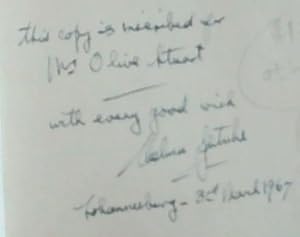 this copy is inscribed for
Mrs Olive Stuart
with every good wish
Johannesburg - 3rd March 1967